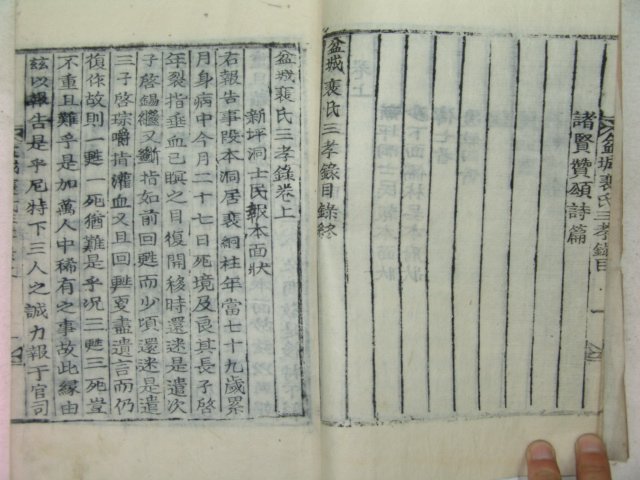 盆城裵氏三孝錄目 一
諸賢贊頌詩篇
盆城裵氏三孝錄目錄終
盆城裵氏三孝錄卷上
新坪洞士民報本面狀
右報告事段本洞居裵絧柱年當七十九歲累
月身病中今月二十七日死境及良其長子啓
年裂指垂血已瞑之目復開移時還迷是遣次
子啓錫繼又斷指如前回甦而少頃還迷是遣
三子啓琮嚼指灌血又且回甦盡遺言而仍
復作故則一甦一死猶難是乎況三甦三死豈
不重且難乎是加萬人中稀有之事故此緣由
玆以報告是乎尼特下三人之誠力報于官司